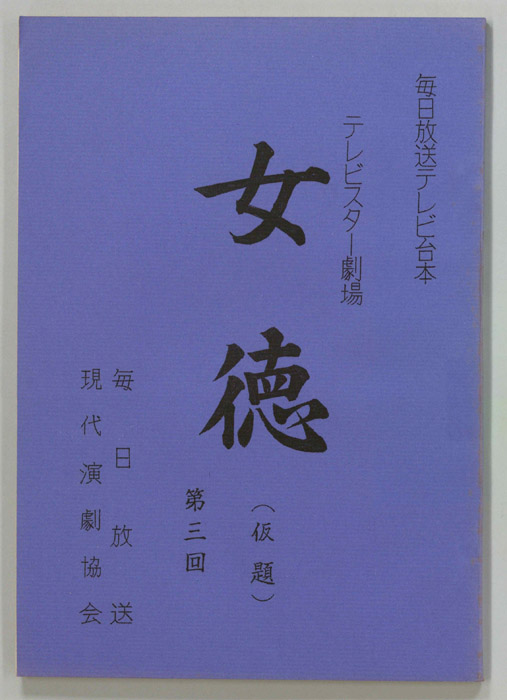 毎日放送テレビ台本
テレビスター劇場
女徳
(仮題)
第三回
毎日放送
現代演劇協会